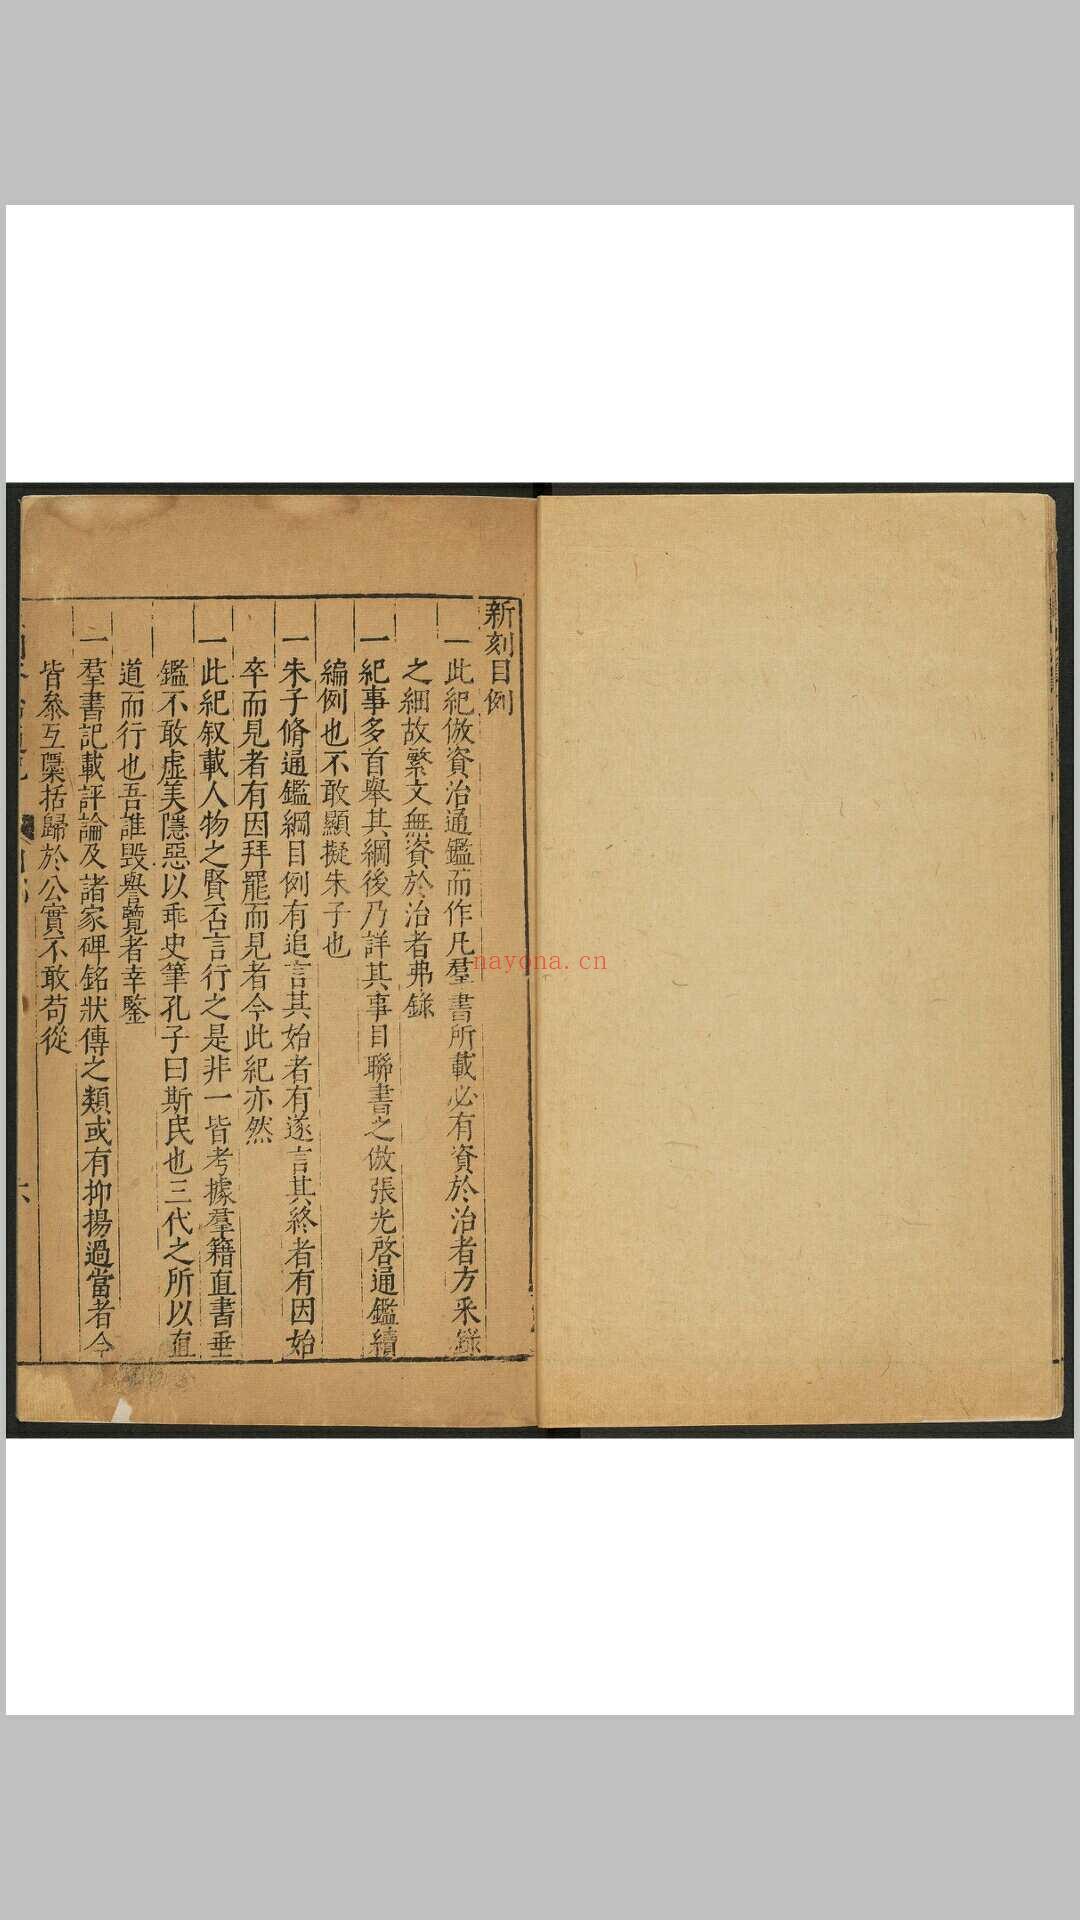 新刻目例
一此紀倣資治通鑑而作凡羣書所載必有資於治者方采錄
之細故繁文無資於治者弗錄
一紀事多首舉其綱後乃詳其事目聯書之倣張光啓通鑑續
編例也不敢顯擬朱子也
一朱子脩通鑑綱目例有追言其始者有遂言其終者有因始
卒而見者有因拜罷而見者今此紀亦然
一此紀叙載人物之賢否言行之是非一皆考據羣籍直書垂
鑑不敢虛美隱惡以乖史筆孔子曰斯民也三代之所以直
道而行也吾誰毀譽覽者幸鑒
一羣書記載評論及諸家碑銘狀傳之類或有抑揚過當者今
皆叅互檃括歸於公實不敢苟從
nayona.cn